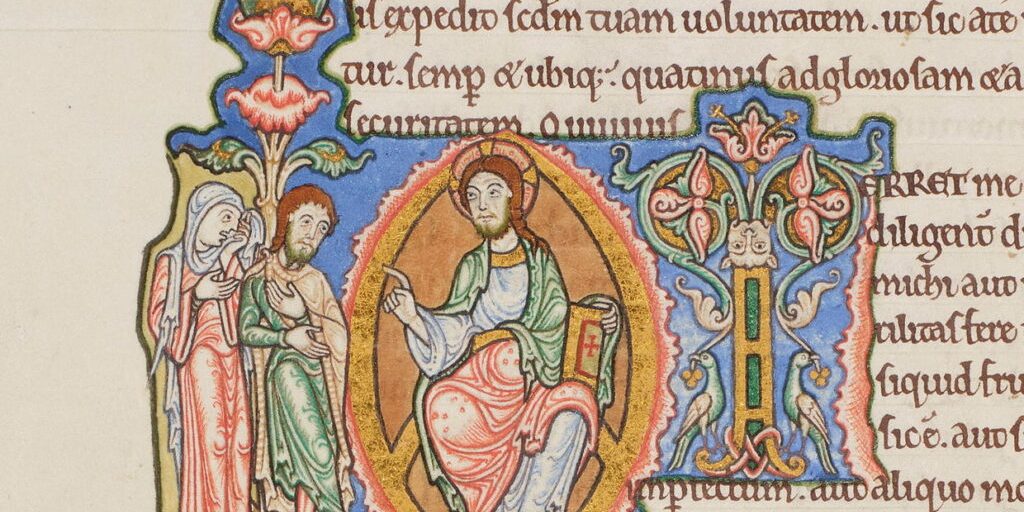 il expedito scdm tuam uoluntatem . ut sic a te
tur . semp & ubiq; : quatinus ad gloriosam & a
securitatem Qui uiuis
TERRET me
diligent d
michi aut
tilitas fere
siquid fru
sic ē. aut s
imperfectum . aut aliquo mo